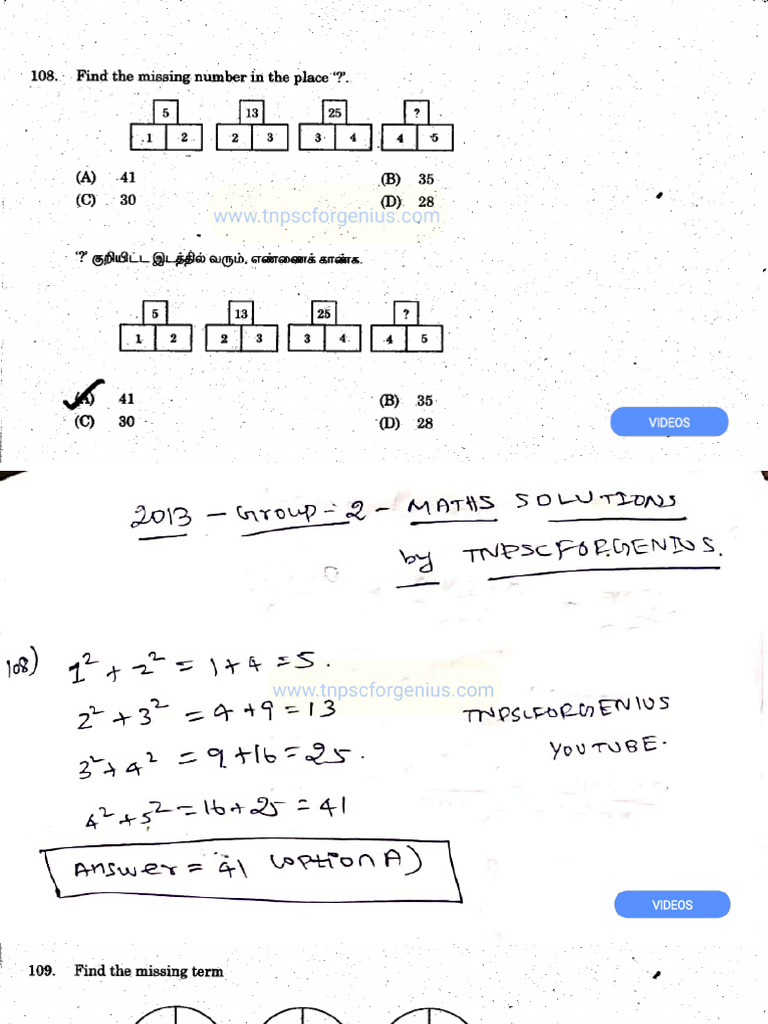 108. Find the missing number in the place '?'.
5 13 25 ?
1 2 2 3 3 4 4 5
(A) 41 (B) 35
(C) 30 (D) 28
www.tnpscforgenius.com
'?' குறியிட்ட இடத்தில் வரும், எண்ணைக் காண்க.
5 13 25 ?
1 2 2 3 3 4 4 5
(A) 41 (B) 35
(C) 30 (D) 28
VIDEOS
2013 - Group - 2 - MATHS SOLUTIONS
by TNPSCFORGENIUS.
108) 1² + 2² = 1 + 4 = 5.
www.tnpscforgenius.com
2² + 3² = 4 + 9 = 13
TNPSCFORGENIUS
YOUTUBE.
3² + 4² = 9 + 16 = 25.
4² + 5² = 16 + 25 = 41
Answer = 41 (option A)
VIDEOS
109. Find the missing term